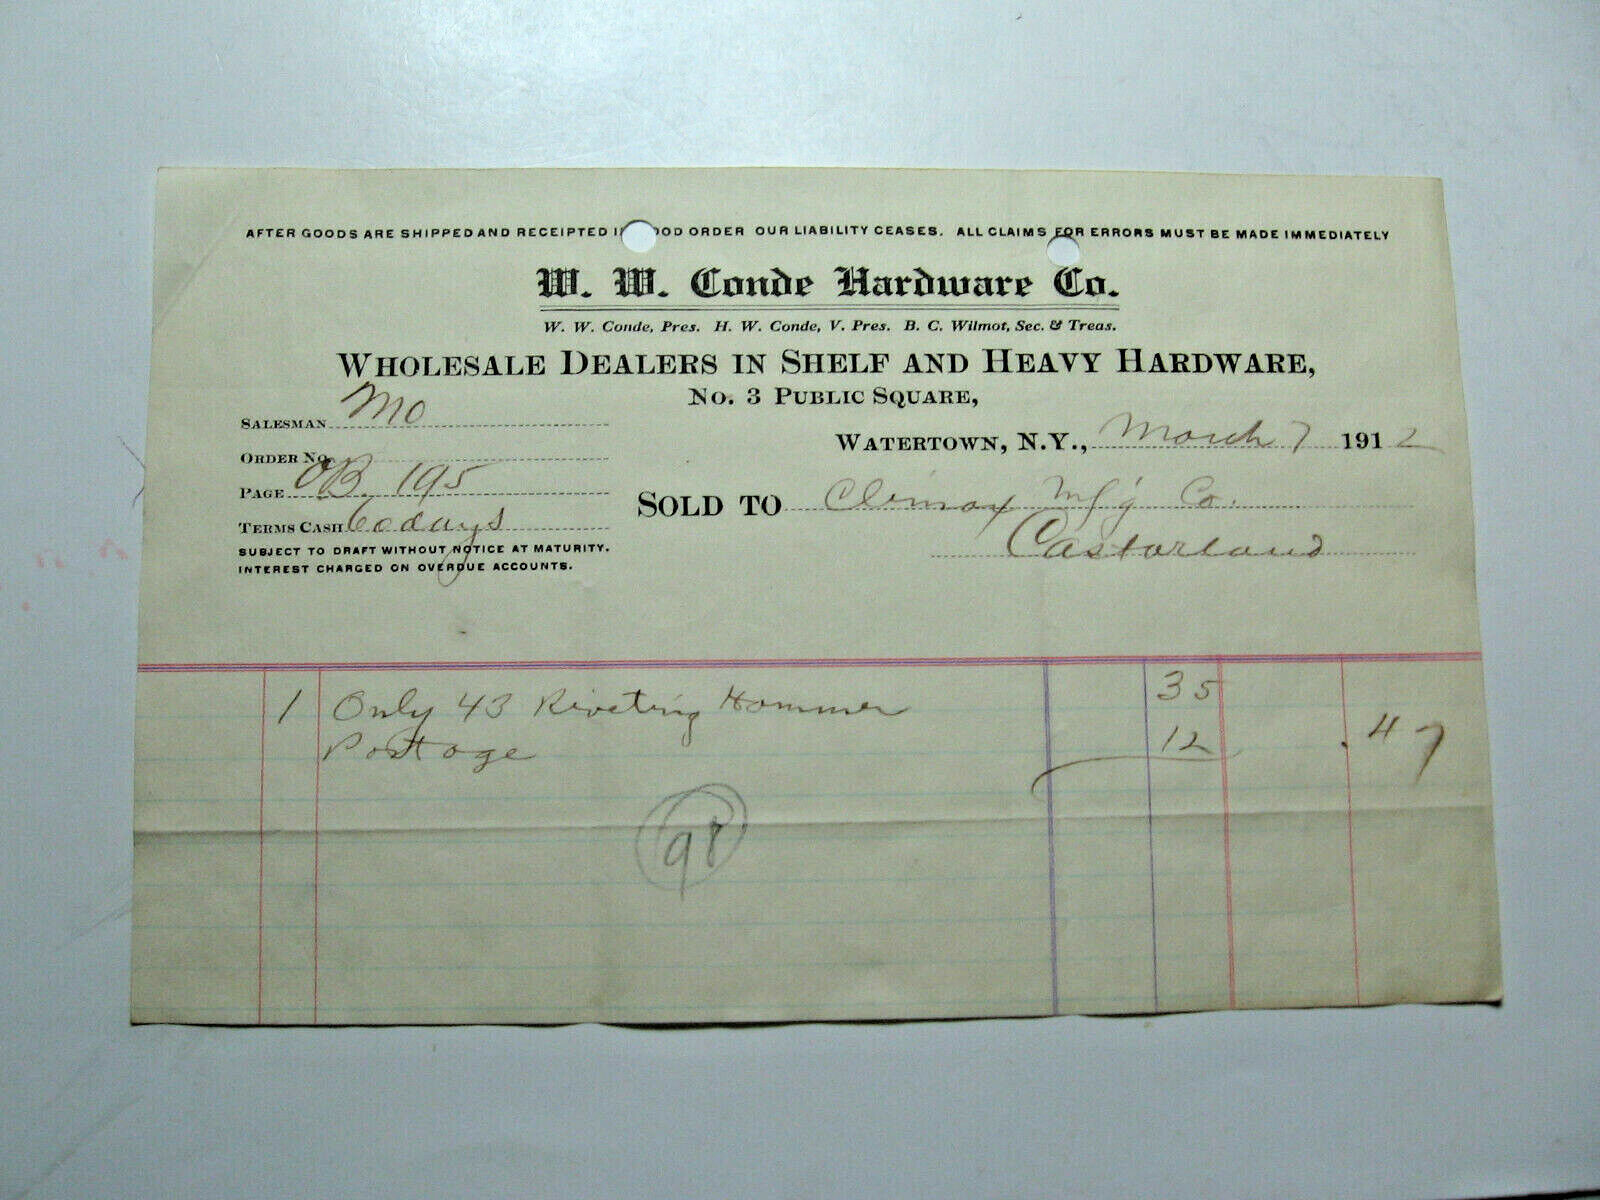 AFTER GOODS ARE SHIPPED AND RECEIPTED I OOD ORDER OUR LIABILITY CEASES. ALL CLAIMS FOR ERRORS MUST BE MADE IMMEDIATELY
W. W. Conde Hardware Co.
W. W. Conde, Pres. H. W. Conde, V. Pres. B. C. Wilmot, Sec. & Treas.
WHOLESALE DEALERS IN SHELF AND HEAVY HARDWARE,
NO. 3 PUBLIC SQUARE,
SALESMAN MO
WATERTOWN, N.Y., March 7 1912
ORDER NO.
PAGE OB 195
SOLD TO Climax Mf'g Co.
TERMS CASH 60 days
Castorland
SUBJECT TO DRAFT WITHOUT NOTICE AT MATURITY.
INTEREST CHARGED ON OVERDUE ACCOUNTS.
1 Only 43 Riveting Hammer 35
Postage 12 .47
98